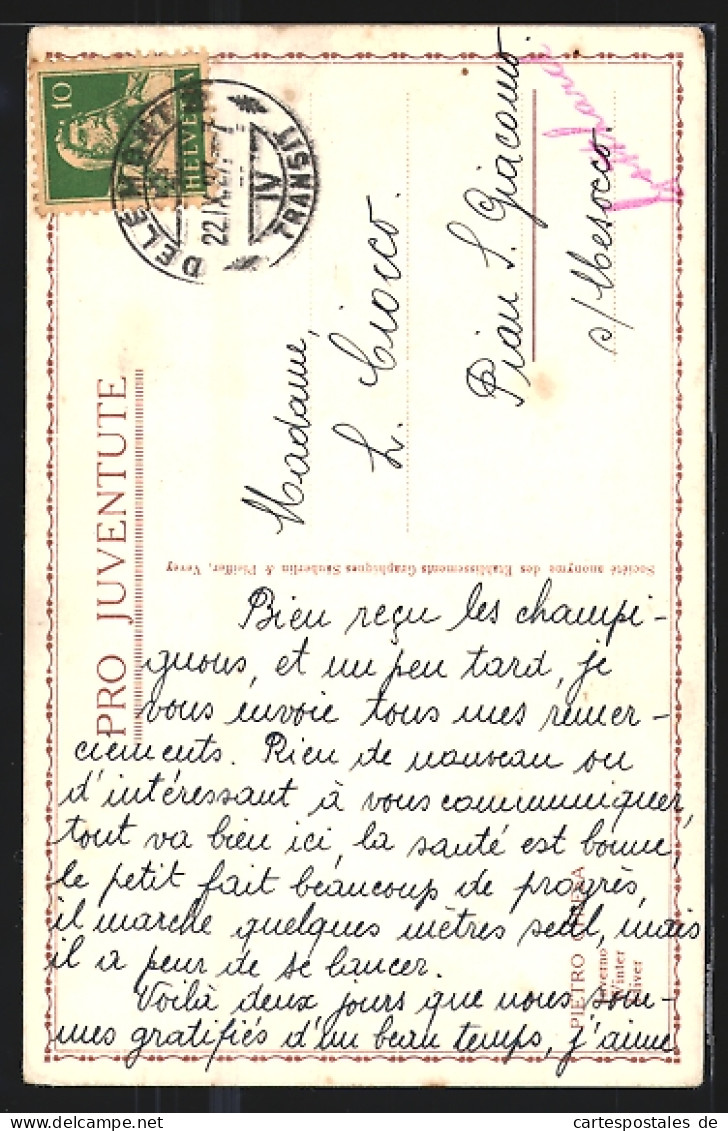 10
HELVETIA
DELÉMONT
22.IX.27.
IV
TRANSIT
PRO JUVENTUTE
Madame,
L. Ciocco.
Pian S. Giacomo
s/ Mesocco.
Société anonyme des Etablissements Graphiques Sauberlin & Pfeiffer, Vevey
Bien reçu les champi-
gnons, et un peu tard, je
vous envoie tous mes remer-
ciements. Rien de nouveau ou
d'intéressant à vous communiquer,
tout va bien ici, la santé est bonne,
le petit fait beaucoup de progrès,
il marche quelques mètres seul, mais
il a peur de se lancer.
Voilà deux jours que nous som-
mes gratifiés d'un beau temps, j'aime
PIETRO CHIESA
Inverno
Winter
Hiver
www.delcampe.net
cartespostales de